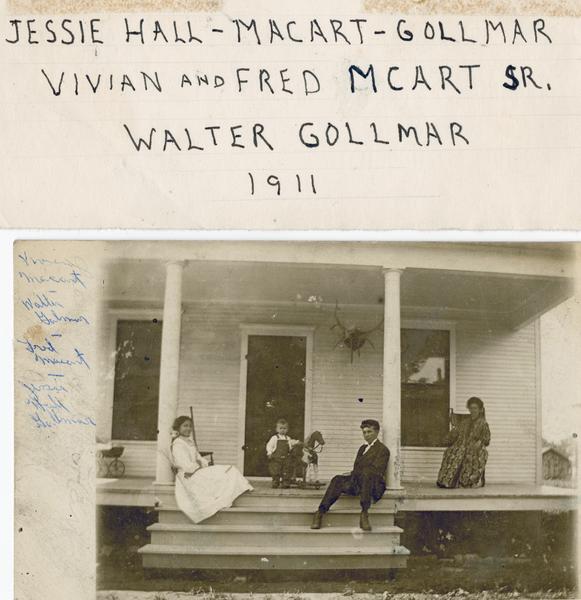 JESSIE HALL-MACART-GOLLMAR
VIVIAN AND FRED MCART SR.
WALTER GOLLMAR
1911
Vivian
Macart
-
Walter
Gollmar
-
Fred
Macart
-
Jessie
Gollmar